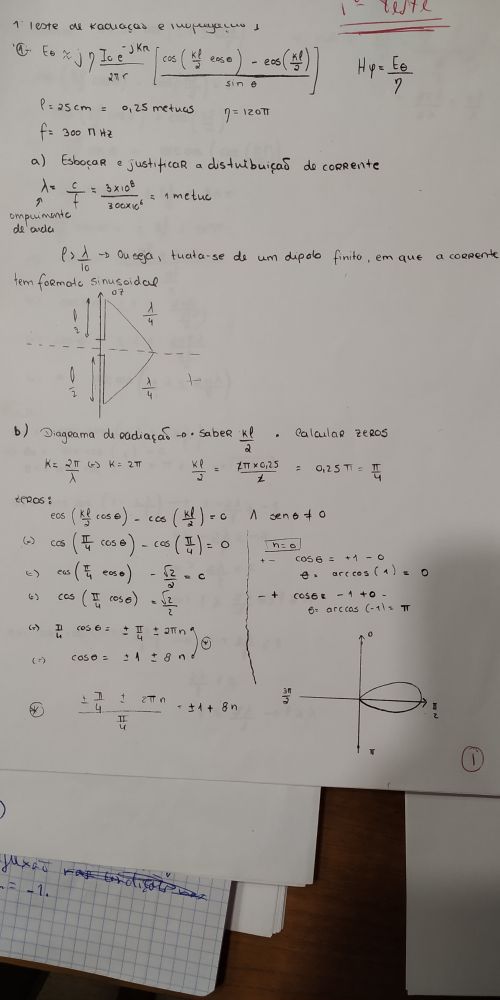 1º teste
1 Teste de Radiação e Propagação 1
1- Eθ ≈ jη (I₀ e^-jkr)/(2πr) [ (cos(kl/2 cosθ) - cos(kl/2)) / sin θ ]   Hφ = Eθ/η
l = 25cm = 0,25 metros   η = 120π
f = 300 MHz
a) Esboçar e justificar a distribuição de corrente
λ = c/f = 3×10⁸/300×10⁶ = 1 metro
comprimento
de onda
l > λ/10 → Ou seja, trata-se de um dipolo finito, em que a corrente
tem formato sinusoidal
l/2 λ/4
l/2 λ/4
b) Diagrama de radiação → • saber kl/2 • calcular zeros
K = 2π/λ (=) K = 2π   kl/2 = 2π×0,25/2 = 0,25π = π/4
zeros:
cos(kl/2 cosθ) - cos(kl/2) = 0 ∧ senθ ≠ 0
(=) cos(π/4 cosθ) - cos(π/4) = 0
(=) cos(π/4 cosθ) - √2/2 = 0
(=) cos(π/4 cosθ) = √2/2
(=) π/4 cosθ = ± π/4 ± 2πn
(=) cosθ = ± 1 ± 8n
n=0
+- cosθ = +1 - 0
θ = arccos(1) = 0
-+ cosθ = -1 + 0
θ = arccos(-1) = π
(*) (± π/4 ± 2πn)/(π/4) = ±1 + 8n
0
3π/2
π/2
π
1
= -1.